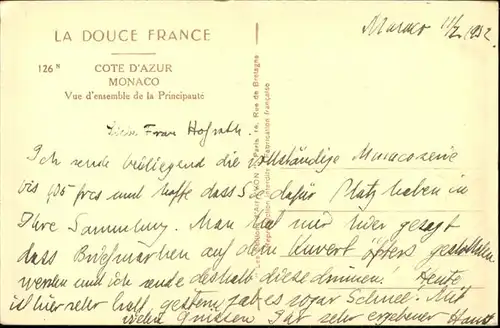 LA DOUCE FRANCE
126 N
COTE D'AZUR
MONACO
Vue d'ensemble de la Principauté
Monaco 11/2 1952
Liebe Frau Hofrath.
Ich sende beiliegend die vollständige Monacoserie
bis frcs und hoffe dass Sie dafür Platz haben in
Ihre Sammlung. Man hat mir hier gesagt
dass Briefmarken auf dem Kuvert öfters gestohlen
werden und ich sende deshalb diese drinnen. Heute
ist hier sehr kalt, gestern gab es sogar Schnee. Mit
vielen Grüssen Ihr sehr ergebener Hans
Paris, Rue de Bretagne
Reproduction interdite Fabrication française